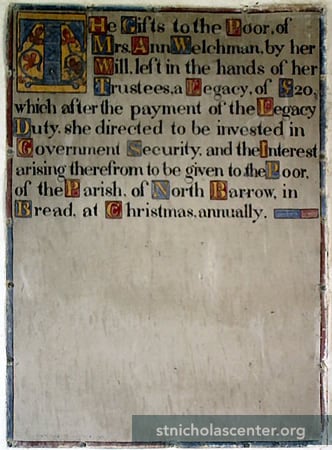 The Gifts to the Poor, of
Mrs. Ann Welchman, by her
Will, left in the hands of her
Trustees, a Legacy, of £20,
which after the payment of the Legacy
Duty, she directed to be invested in
Government Security, and the Interest
arising therefrom to be given to the Poor,
of the Parish, of North Barrow, in
Bread, at Christmas, annually.
stnicholascenter.org